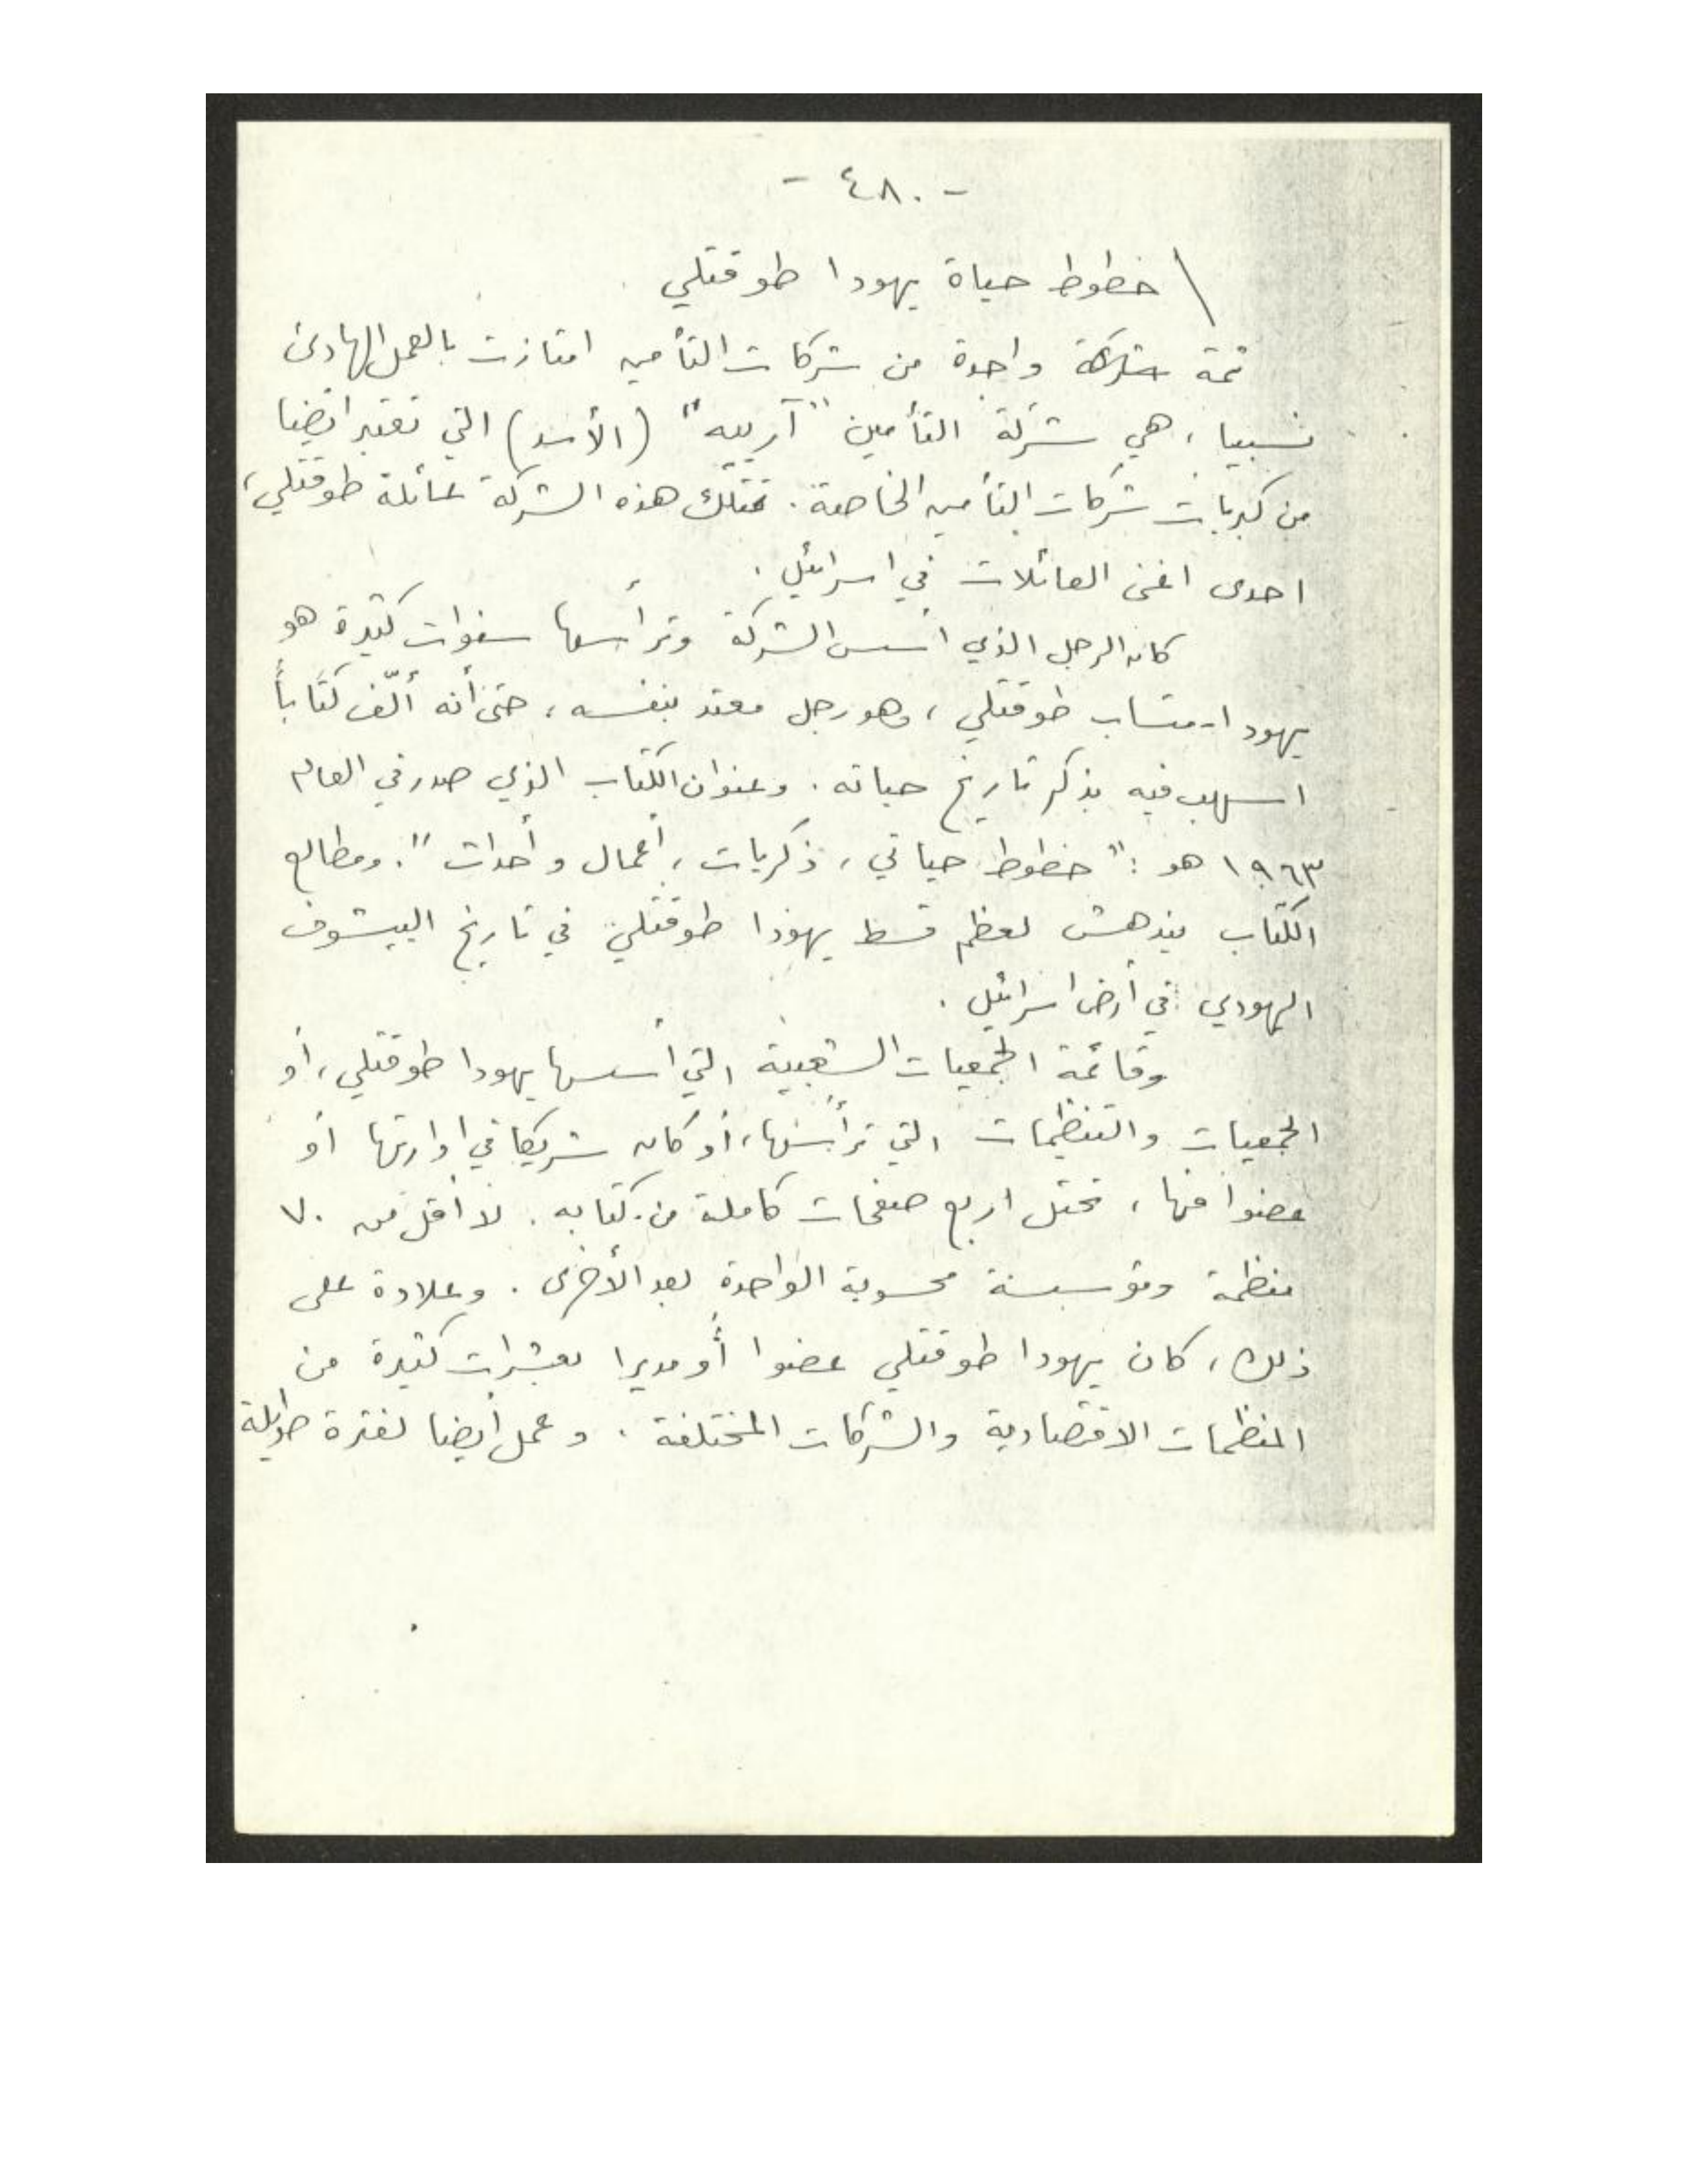 - ٤٨٠ -
خطوط حياة يهودا طوقتلي
ثمة شركة واحدة من شركات التأمين امتازت بالعمل الهادئ
نسبيا ، هي شركة التأمين " آرييه " (الأسد) التي تعتبر ايضا
من كبريات شركات التأمين الخاصة . تمتلك هذه الشركة عائلة طوقتلي ،
احدى اغنى العائلات في اسرائيل .
كان الرجل الذي أسس الشركة وترأسها سنوات كثيرة هو
يهودا - متساب طوقتلي ، وهو رجل معتد بنفسه ، حتى أنه ألّف كتاباً
اسهب فيه بذكر تاريخ حياته . وعنوان الكتاب الذي صدر في العام
١٩٦٣ هو : " خطوط حياتي ، ذكريات ، أعمال وأحداث " . ومطالع
الكتاب يندهش لعظم قسط يهودا طوقتلي في تاريخ الييشوف
اليهودي في أرض اسرائيل .
وقائمة الجمعيات الشعبية التي أسسها يهودا طوقتلي ، أو
الجمعيات والتنظيمات التي ترأسها ، أو كان شريكا في ادارتها أو
عضوا فيها ، تحتل اربع صفحات كاملة من كتابه . لا أقل من ٧٠
منظمة ومؤسسة محسوبة الواحدة بعد الأخرى . وعلاوة على
ذلك ، كان يهودا طوقتلي عضوا أو مديرا لعشرات كثيرة من
المنظمات الاقتصادية والشركات المختلفة . وعمل أيضا لفترة طويلة